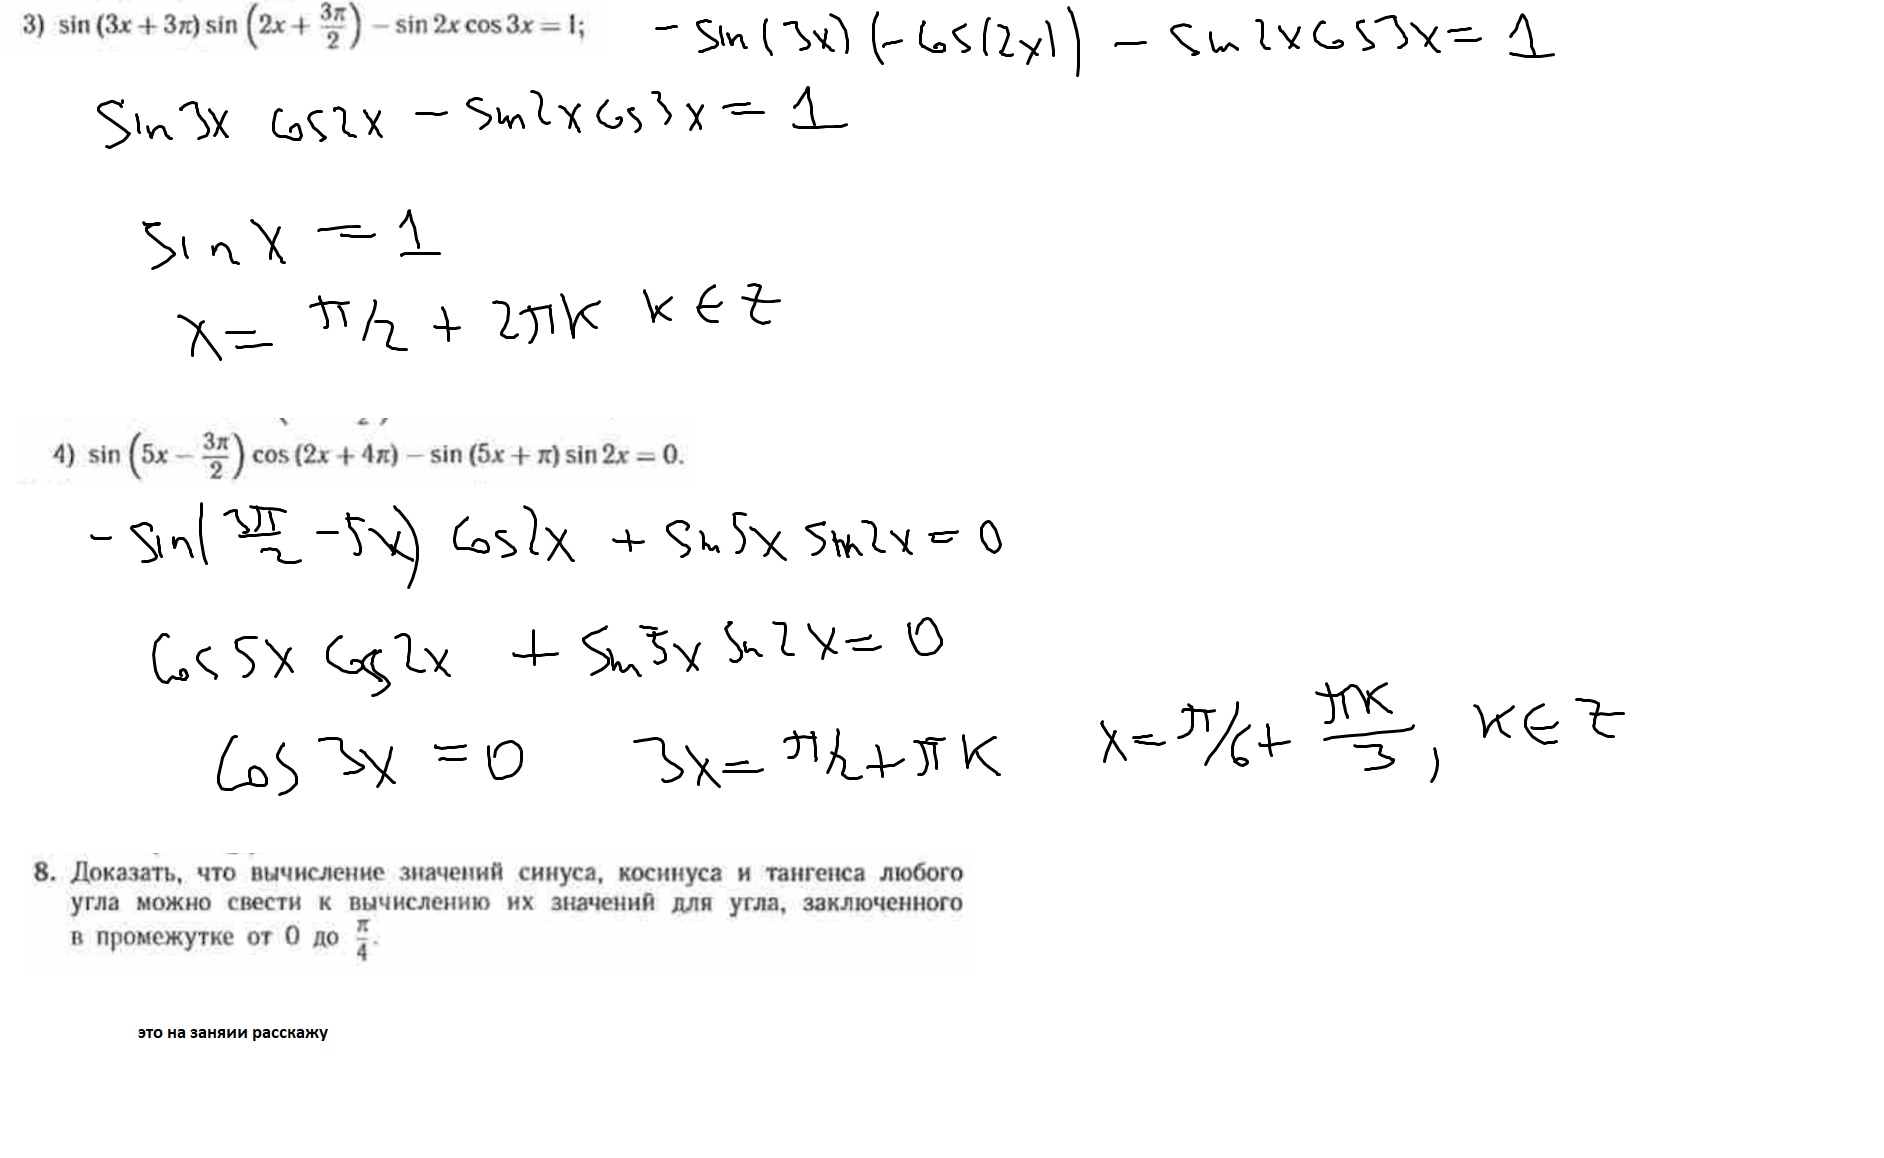 3) sin (3x + 3π) sin (2x + 3π/2) − sin 2x cos 3x = 1;
− sin(3x) (−cos(2x)) − sin 2x cos 3x = 1
sin 3x cos 2x − sin 2x cos 3x = 1
sin x = 1
x = π/2 + 2πk k ∈ Z
4) sin (5x − 3π/2) cos (2x + 4π) − sin (5x + π) sin 2x = 0.
− sin(3π/2 − 5x) cos 2x + sin 5x sin 2x = 0
cos 5x cos 2x + sin 5x sin 2x = 0
cos 3x = 0 3x = π/2 + πk x = π/6 + πk/3, k ∈ Z
8. Доказать, что вычисление значений синуса, косинуса и тангенса любого
угла можно свести к вычислению их значений для угла, заключенного
в промежутке от 0 до π/4.
это на заняии расскажу